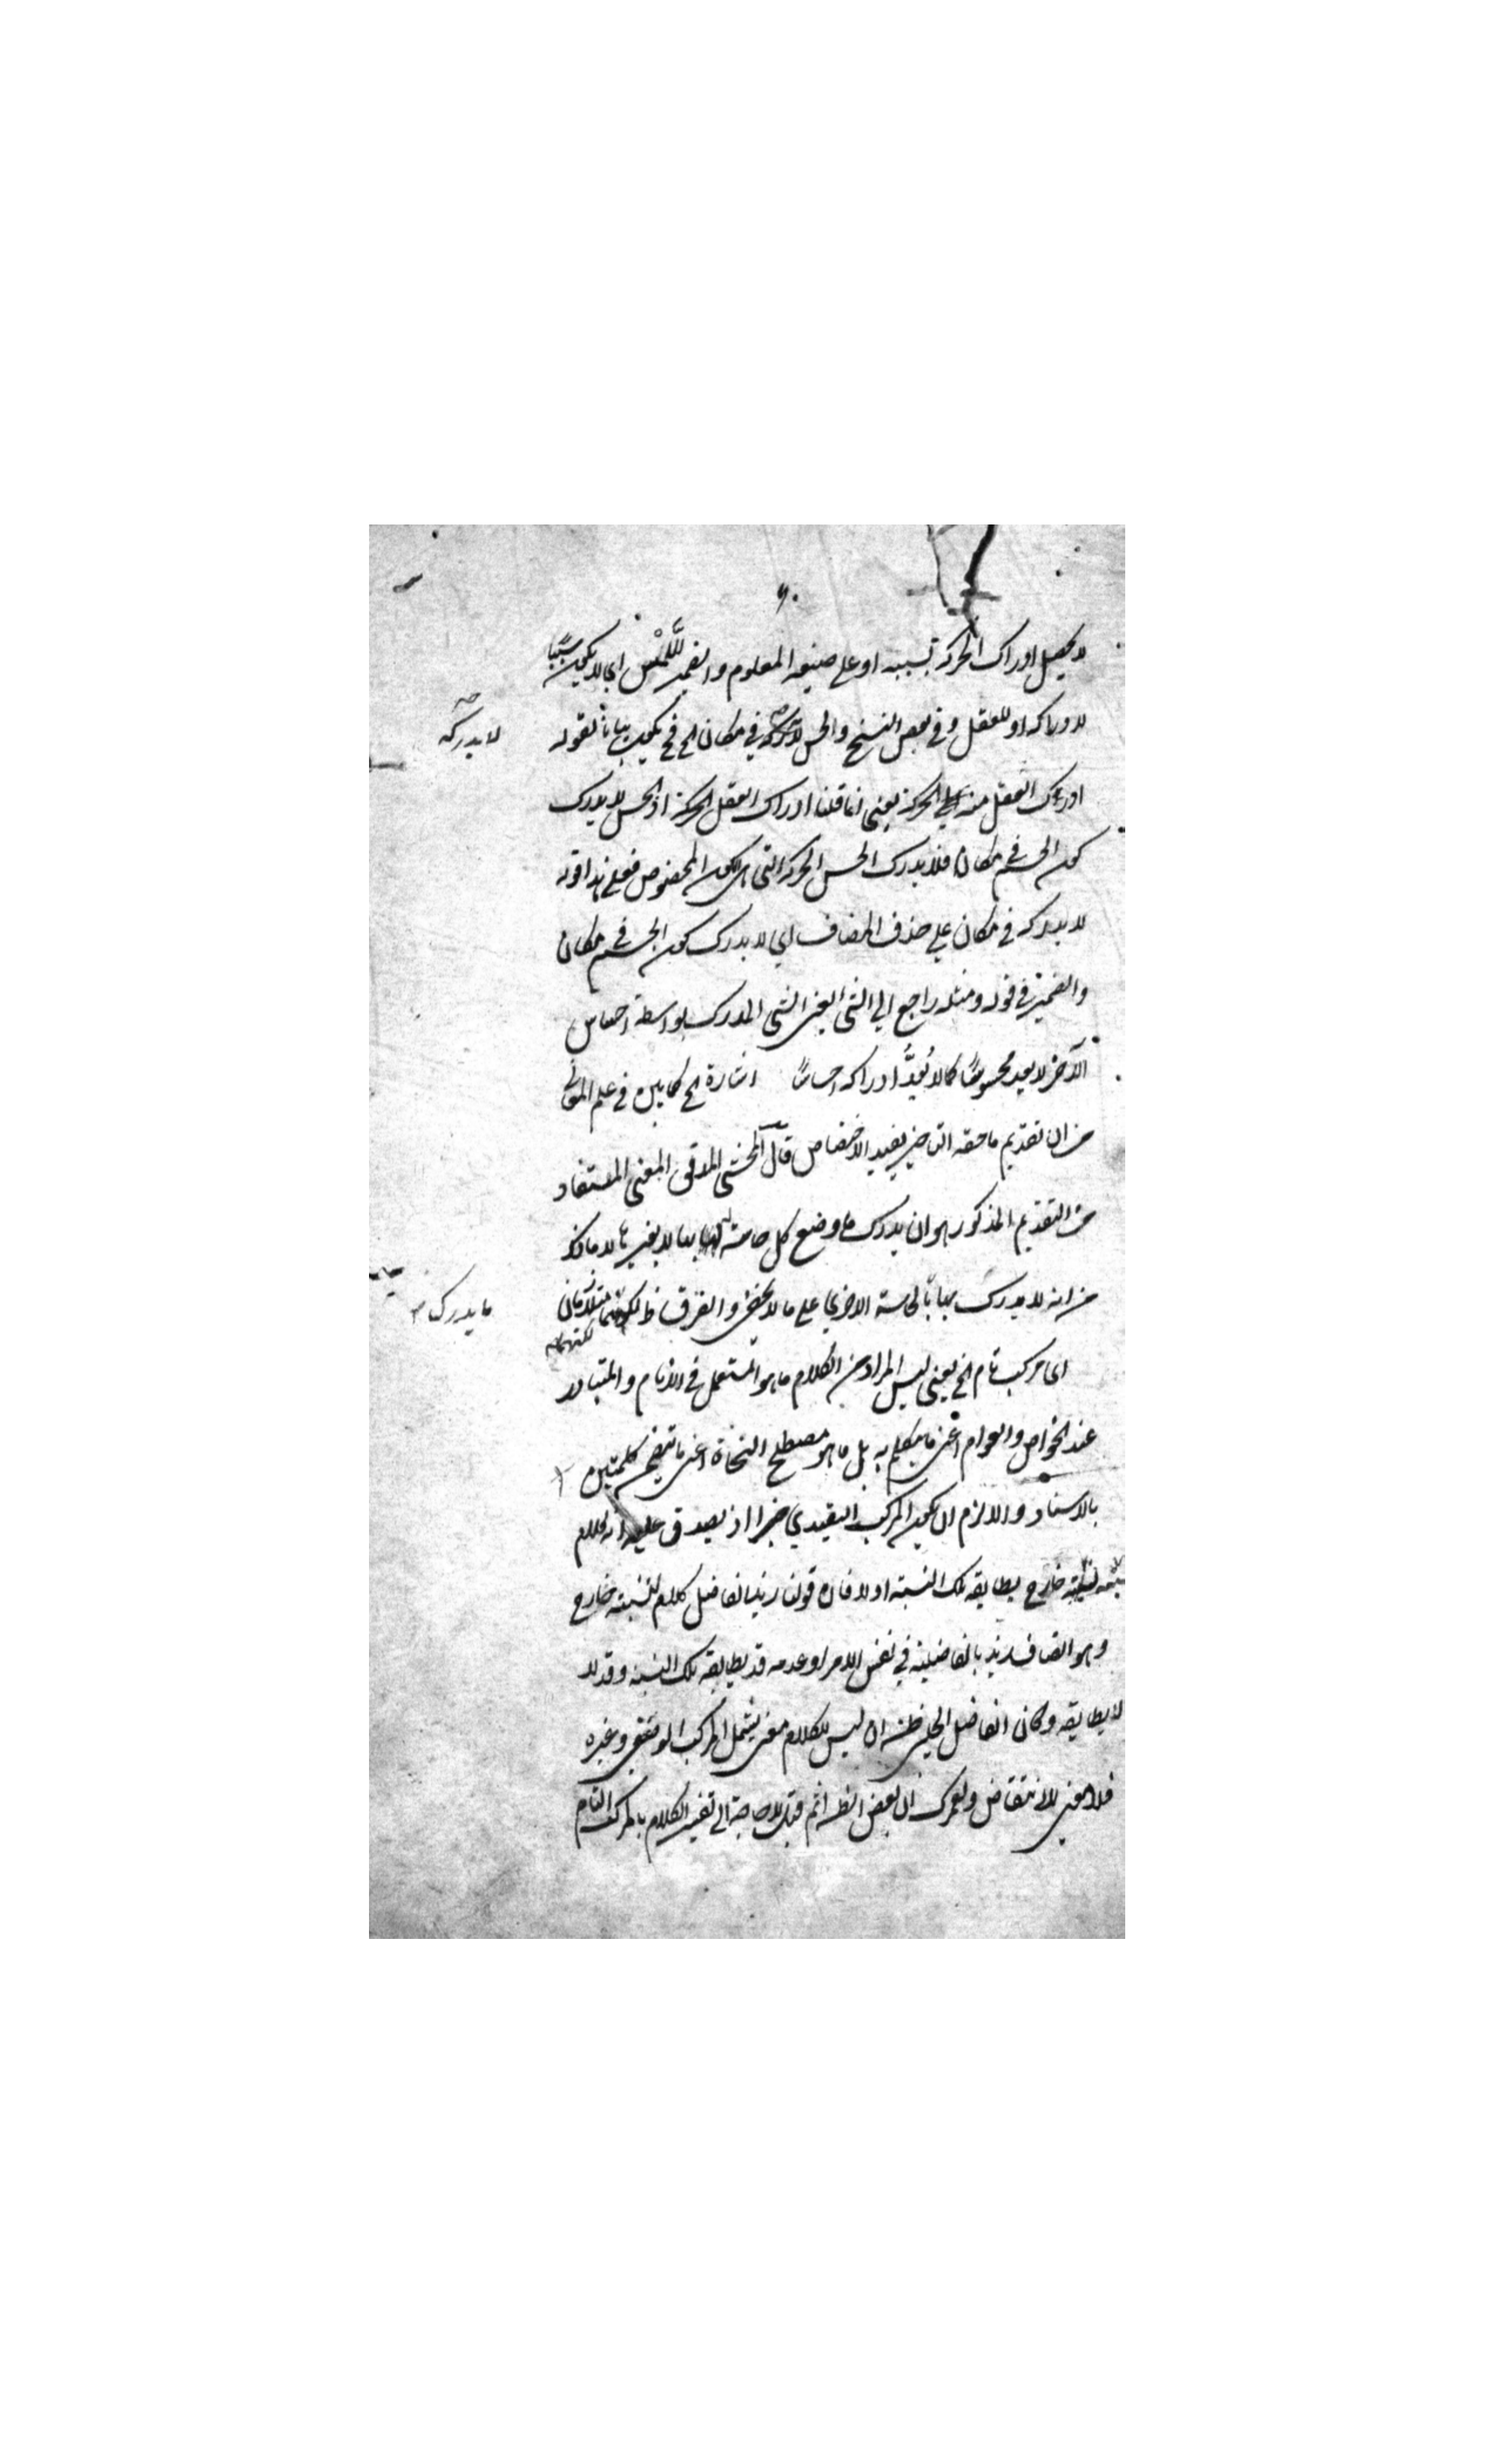 ٩٠
لا يحصل ادراك الحركة بسببه او على صيغة المعلوم والضمير للّمس اي لا يكون سببًا
لادراكه او للعقل وفي بعض النسخ والحس لا يدركه في مكان الخ فح يكون بيانًا لقوله
لا يدركه
ادرك العقل منه الحركة يعني انما قلنا ادراك العقل الحركة اذ الحس لا يدرك
كون الجسم في مكان فلا يدرك الحس الحركة التي هي الكون المخصوص فعلى هذا قوله
لا يدركه في مكان على حذف المضاف اي لا يدرك كون الجسم في مكان
والضمير في قوله ومثله راجع الى الشي اعني الشي المدرك بواسطة احساس
الآخر لا يعد محسوسًا كما لا يُعدُّ ادراكه احساسًا اشارة الخ لما بين في علم المعاني
من ان تقديم ما حقه التاخير يفيد الاختصاص قال المحشي المدقق المعنى المستفاد
من التقديم المذكور هو ان يدرك ما وضع كل حاسة له بها لا بغيرها لا ما ذكر
من انه لا يدرك بها بالحاسة الاخرى على ما لا يخفى والفرق ظ لكنهما متلازمان
ما يدرك
لكنهما
اي مركب تام الخ يعني ليس المراد من الكلام ما هو المستعمل في الافهام والمتبادر
عند الخواص والعوام اعني ما يتكلم به بل ما هو مصطلح النحاة اعني ما تضمن كلمتين
بالاسناد والا لزم ان يكون المركب التقييدي خبرا اذ يصدق عليه انه كلام
لنسبته خارج يطابقه تلك النسبة اولا فان قولنا زيد الفاضل كلام لنسبته خارج
وهو اتصاف زيد بالفاضلية في نفس الامر او عدمه قد يطابقه تلك النسبة وقد لا
لا يطابقه وكان الفاضل الجلبي ظن ان ليس للكلام معنى يشمل المركب التوصيفي وغيره
فلا معنى للانتقاض ولعمرك ان بعض الظن اثم قيل لا حاجة الى تفسير الكلام بالمركب التام